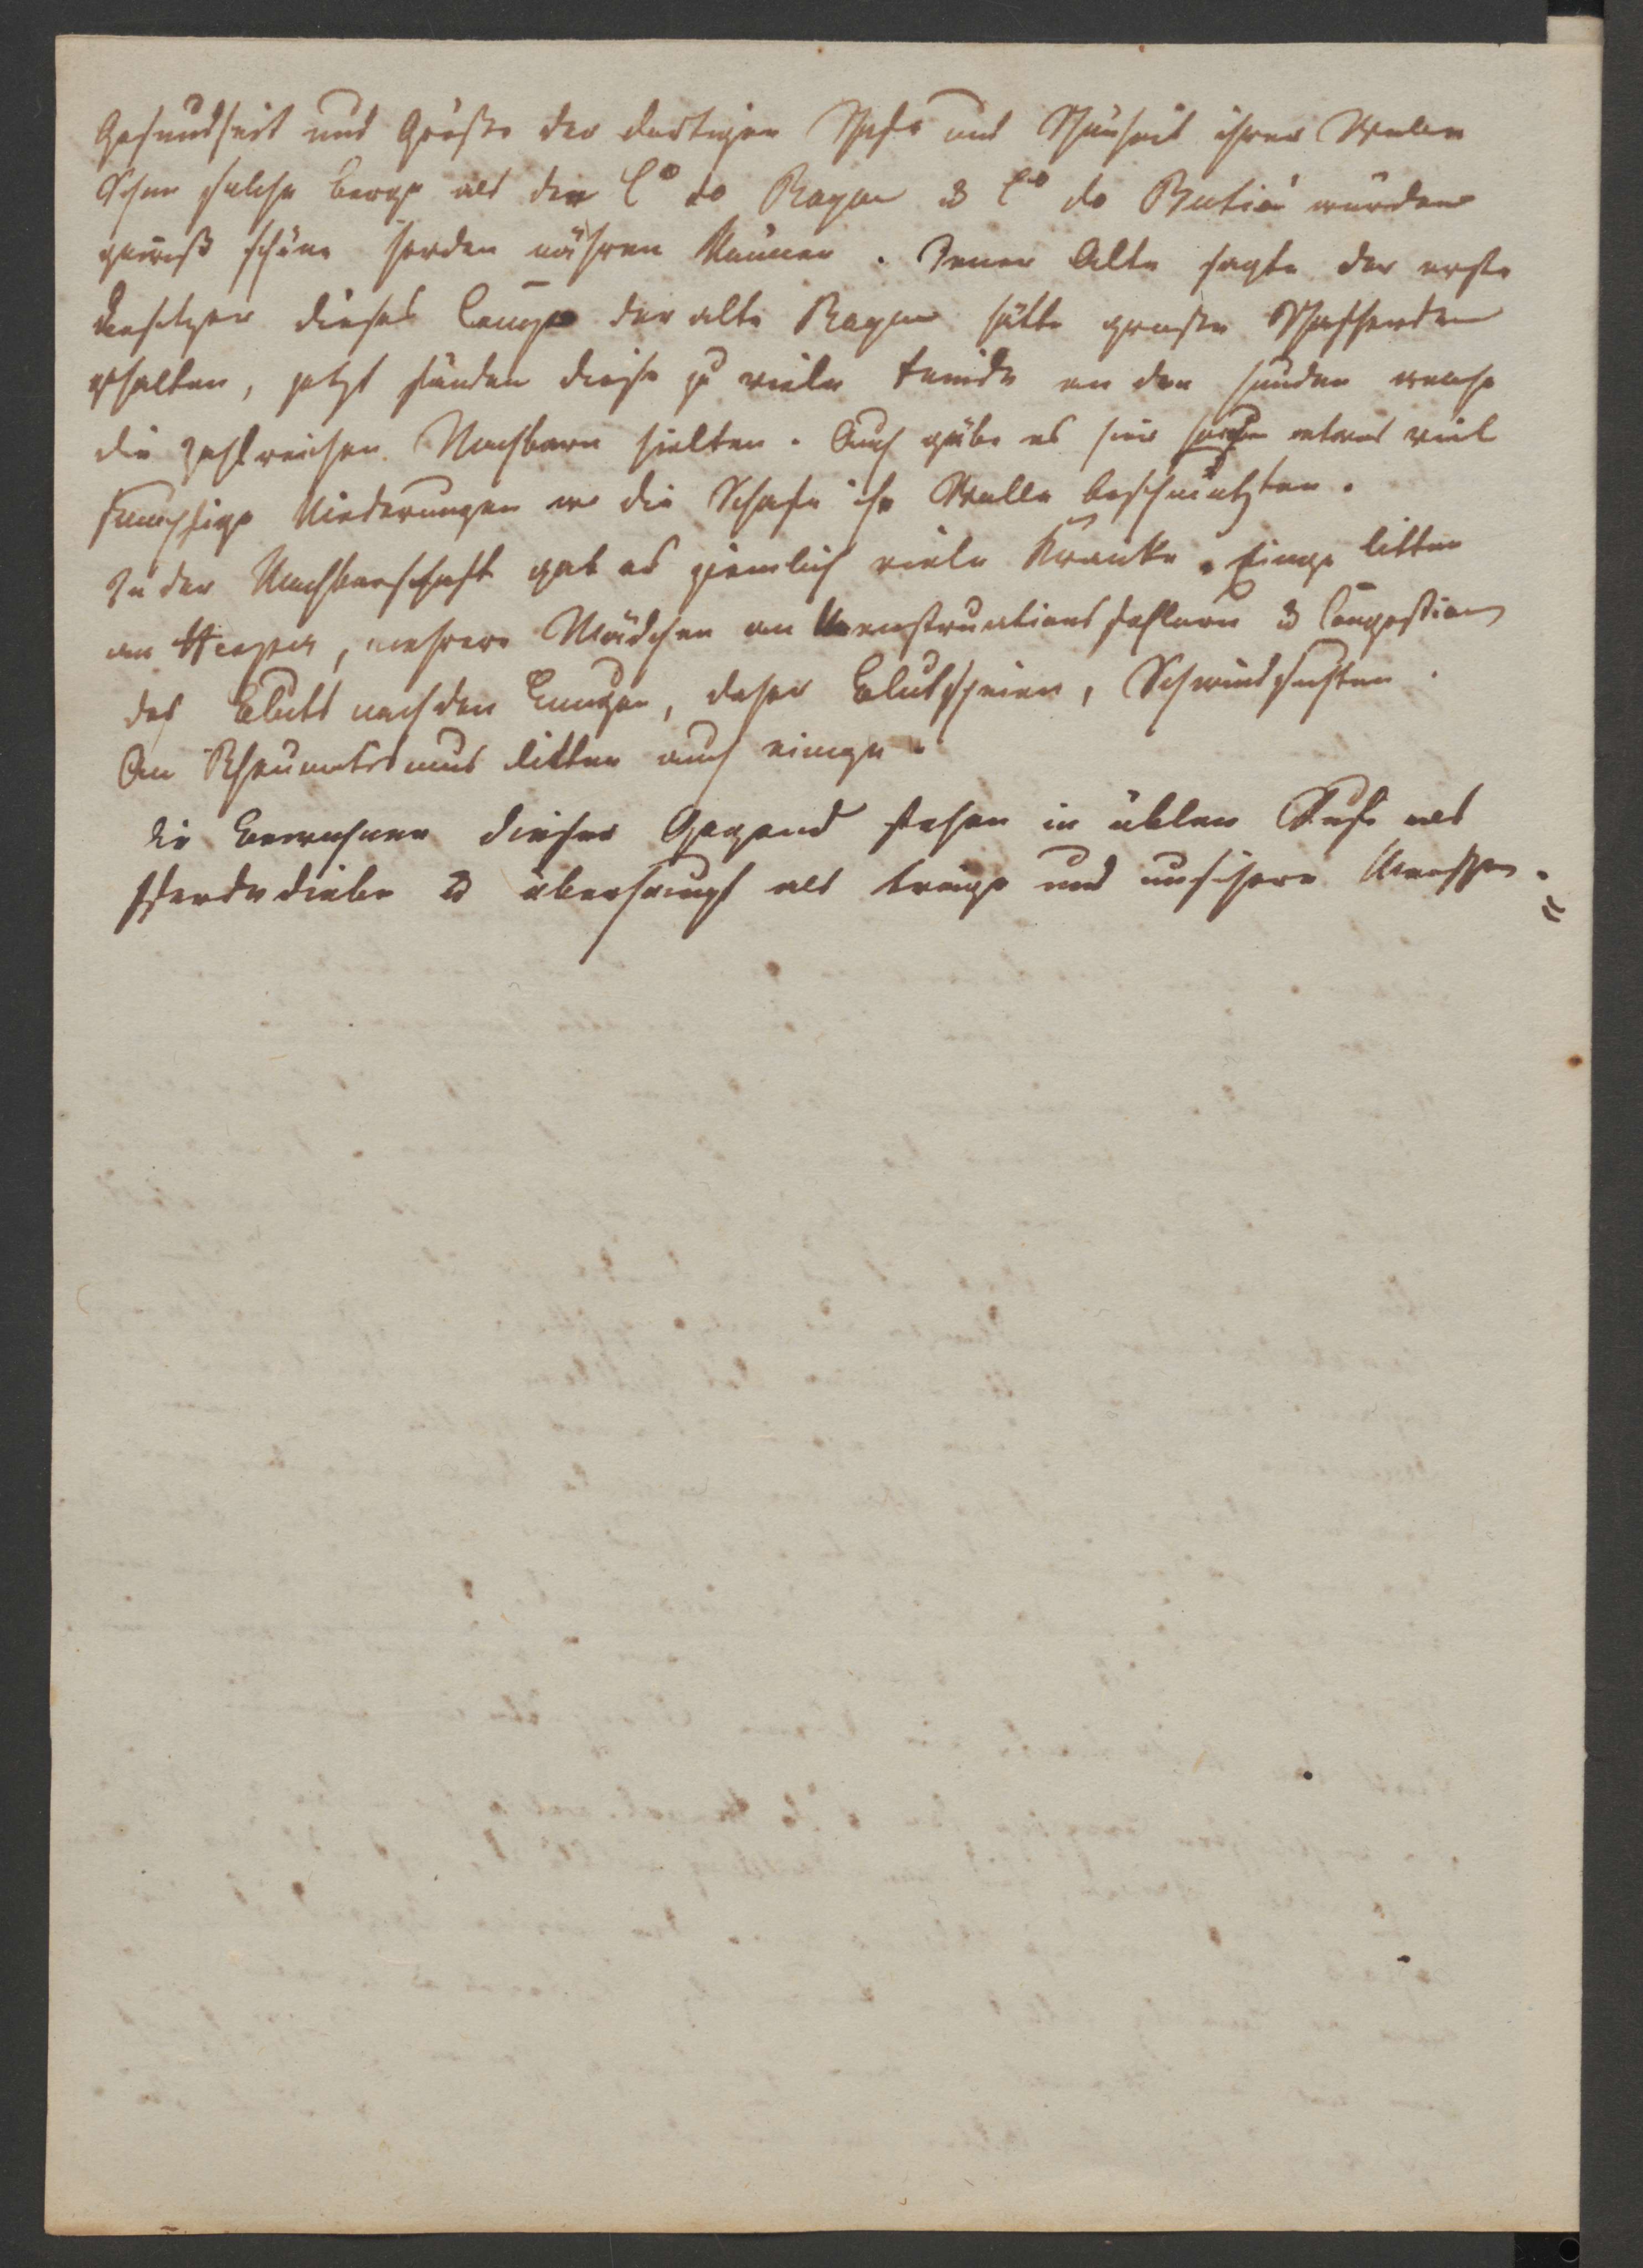 Gesundheit und Größe der dortigen Schafe und Schönheit ihrer Wolle
Schon solche Berge als der C.º do Roque & C.º do Butiá würden
gewiß schöne Herden nähren können. Jener Alte sagte der erste
Besitzer dieses Campo der alte Roque hätte große Schafherden
gehalten, jetzt fänden diese zu viele Feinde an den Hunden welche
die zahlreichen Nachbarn hielten. Auch gäbe es hier etwas viel
sumpfige Niederungen wo die Schafe ihre Wolle beschmutzten.
In der Nachbarschaft gab es ziemlich viele Kranke. Einige litten
an Herpes, mehrere Mädchen an Menstruationsfehlern & Congestion
des Bluts nach den Lungen, daher Blutspeien, Schwindsuchten.
An Rheumatismus litten auch einige.
Die Bewohner dieser Gegend stehen in üblen Rufe als
Pferdediebe & überhaupt als träge und unsichere Menschen.